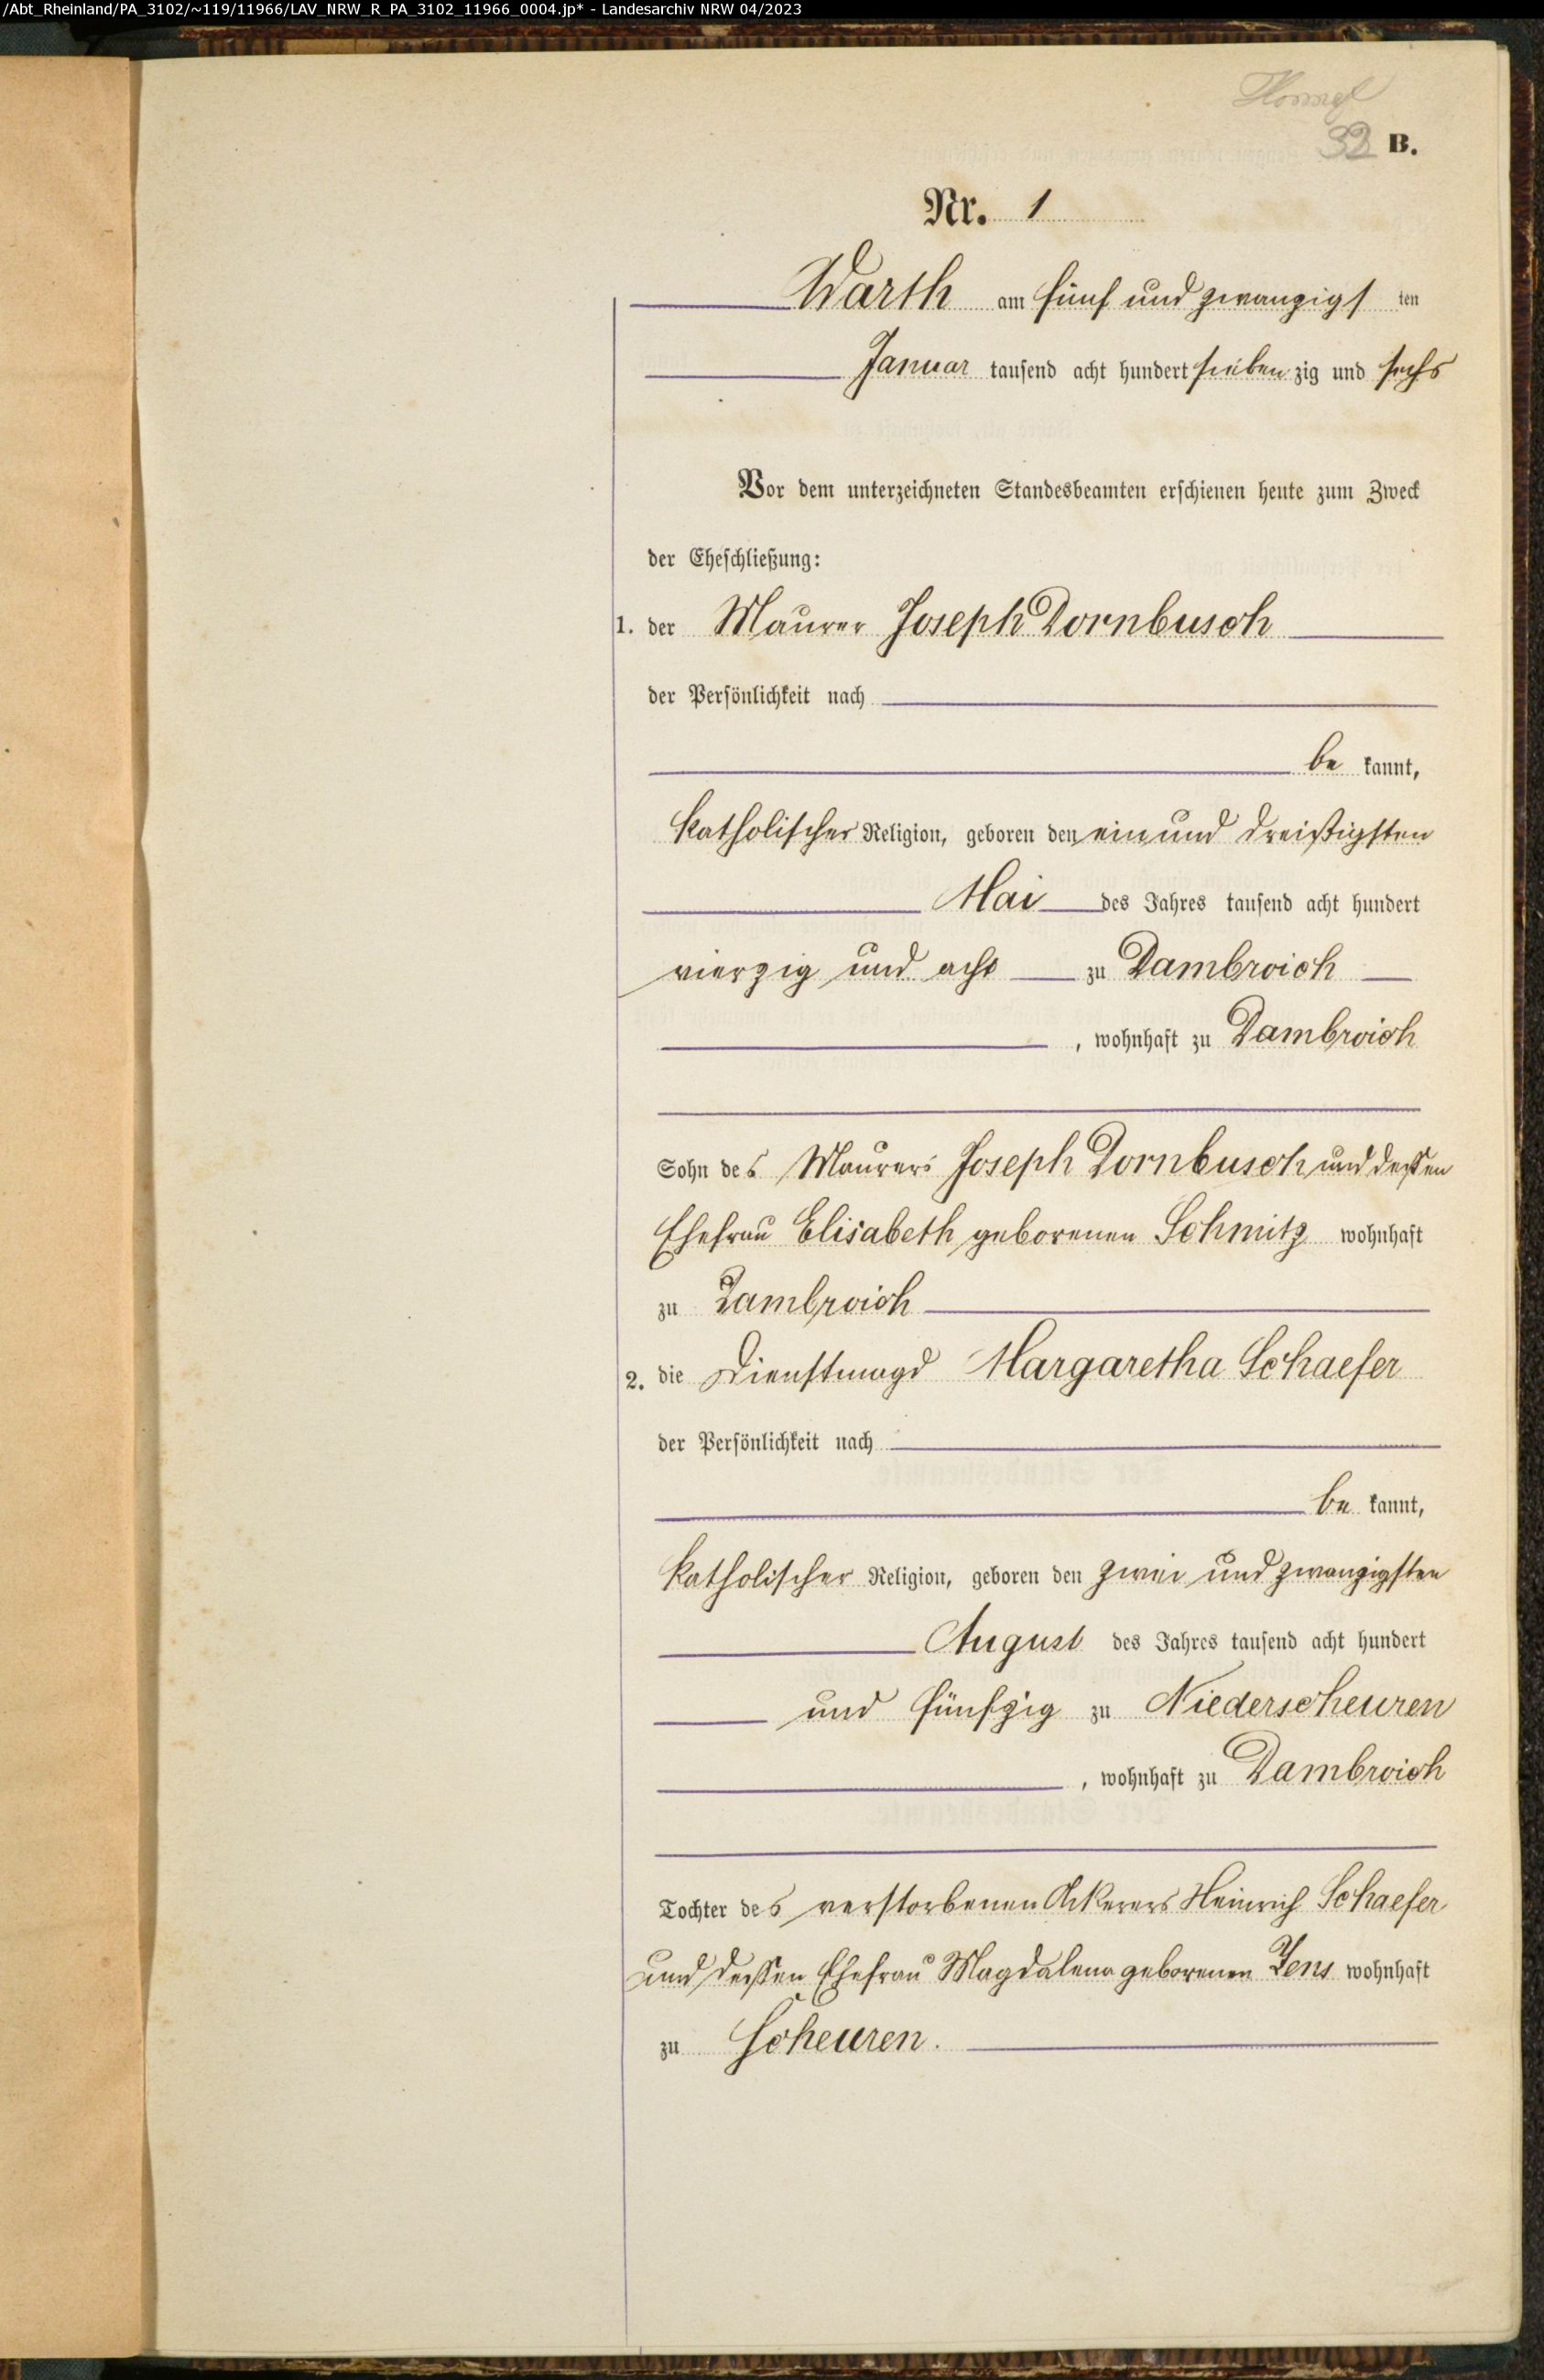 /Abt_Rheinland/PA_3102/~119/11966/LAV_NRW_R_PA_3102_11966_0004.jp* - Landesarchiv NRW 04/2023
32 B.
Nr. 1
Warth am fünf und zwanzigs ten
Januar tausend acht hundert sieben zig und sechs
Vor dem unterzeichneten Standesbeamten erschienen heute zum Zweck
der Eheschließung:
1. der Maurer Joseph Dornbusch
der Persönlichkeit nach
be kannt,
katholischer Religion, geboren den ein und dreißigsten
Mai des Jahres tausend acht hundert
vierzig und acht zu Dambroich
, wohnhaft zu Dambroich
Sohn des Maurers Joseph Dornbusch und dessen
Ehefrau Elisabeth geborenen Schmitz wohnhaft
zu Dambroich
2. die Dienstmagd Margaretha Schaefer
der Persönlichkeit nach
be kannt,
katholischer Religion, geboren den zwei und zwanzigsten
August des Jahres tausend acht hundert
und fünfzig zu Niederscheuren
, wohnhaft zu Dambroich
Tochter des verstorbenen Ackerers Heinrich Schaefer
und dessen Ehefrau Magdalena geborenen wohnhaft
zu Scheuren.